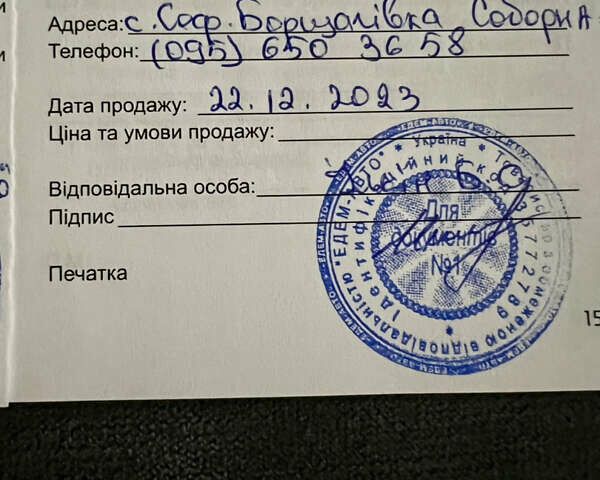 Адреса: с. Соф. Борщагівка Соборна
Телефон: (095) 650 36 58
Дата продажу: 22.12.2023
Ціна та умови продажу:
Відповідальна особа:
Підпис
Печатка
15
Україна * Товариство з обмеженою відповідальністю "ЕДЕМ-АВТО" *
Ідентифікаційний код 35772789 *
Для
документів
№1